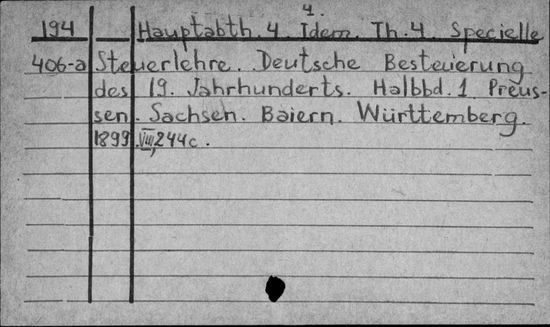 4.
194 Hauptabth. 4. Idem. Th. 4. Specielle
406-a Steuerlehre. Deutsche Besteuerung
des 19. Jahrhunderts. Halbbd. 1 Preus-
sen. Sachsen. Baiern. Württemberg.
1899. VIII, 244 c.